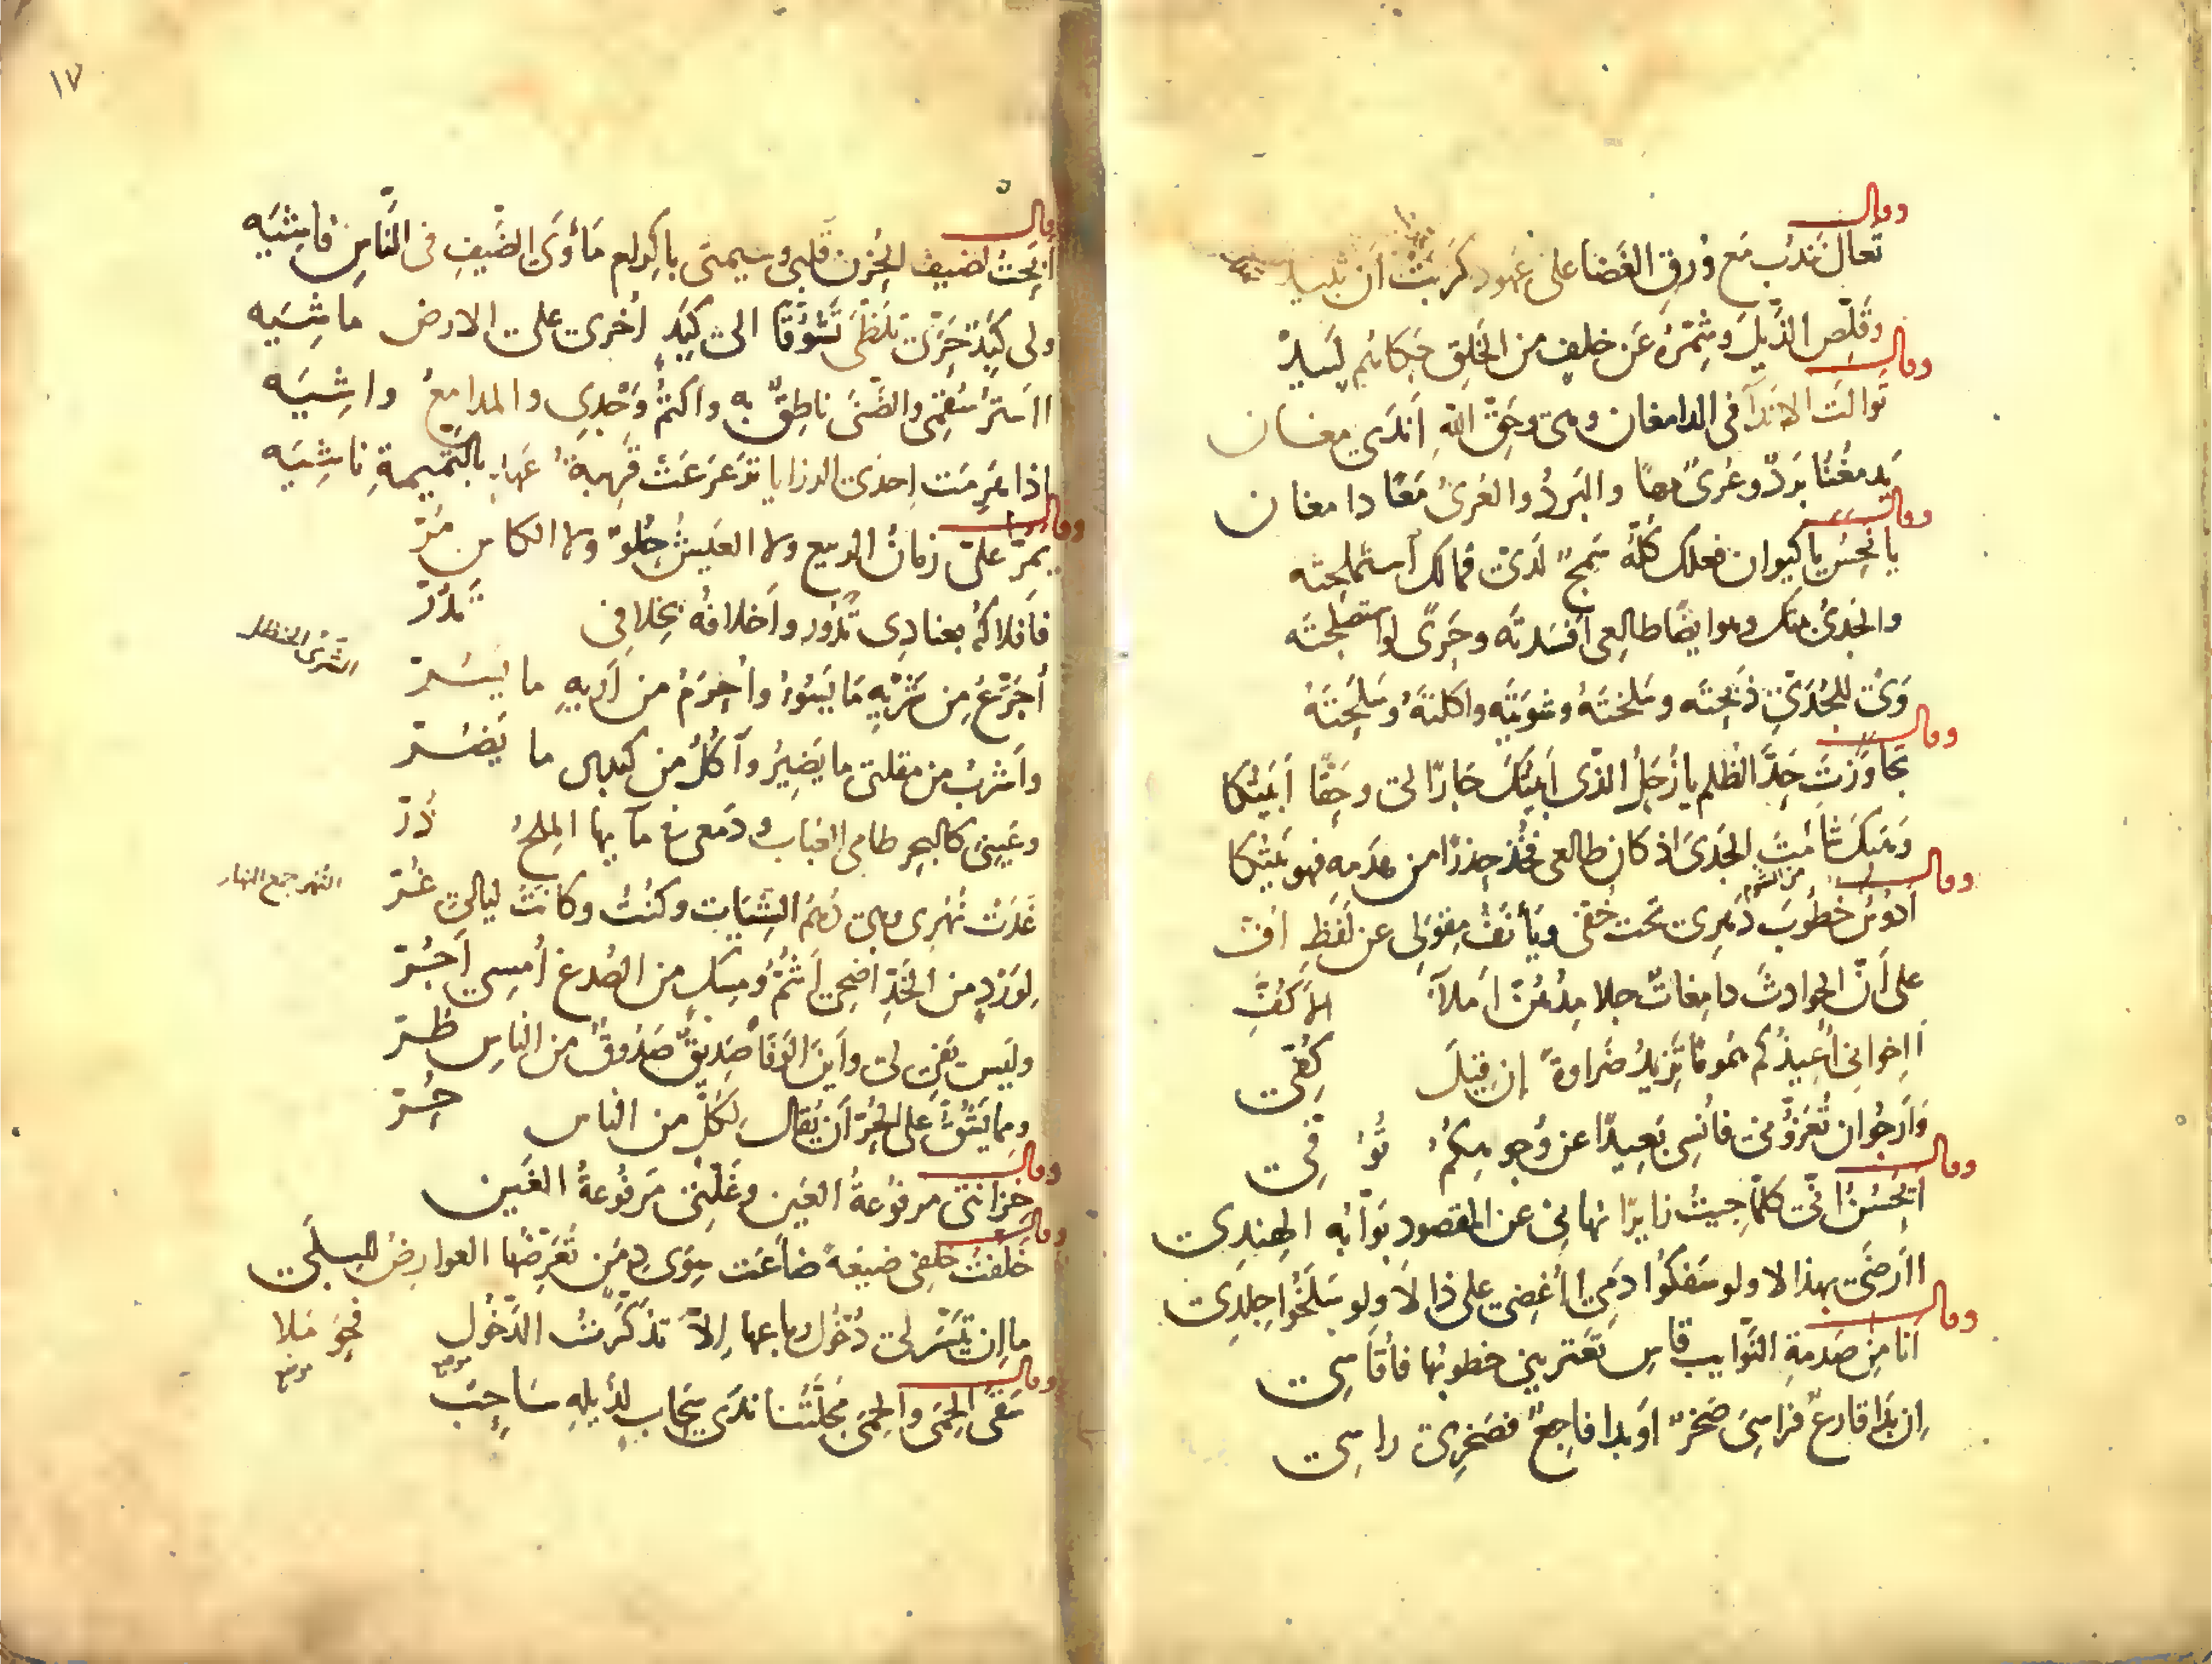 وقال
تعال نندب مع ورق الغضا على عهود كربت أن تبيد
وقلص الذيل وشمره عن خلف من الخلق حكاهم لبيد
وقال
توالت الاندآ في الدامغان وهي وحق الله اندى مغان
يدمغنا برد وعرى بها والبرد والعرى معًا دامغان
وقال
يا نحس يا كيوان فعلك كله سمج لدى فمالك استملحته
والجدى منك وهو ايضًا طالعى أفسدته وحرى لو استصلحته
وى للجدى ذبحته وسلخته وشويته واكلته وملحته
وقال
تجاوزت حد الظلم يا زحل الذى ابيتك جارًا لى وحقا أبيتكا
ومنك شامت الجدى اذ كان طالعى فخذ حذرًا من هدمه فهو بيتكا
وقال
أدوس خطوب دهرى تحت خفى ويأنف مقولى عن لفظ اف
على أن الحوادث دامغات جلامدهن املآ الأكف
أاخوانى أعيذكم همومًا تزيد ضراوة إن قيل كفى
وأرجو ان تعزونى فأنسى بعيدًا عن وجوهكم توفى
وقال
اتحسن انى كلما جيت زايرًا نهانى عن المقصود بوابه الهندى
أأرضى بهذا لا ولو سفكوا دمى أأغضى على ذا لا ولو سلخوا جلدى
وقال
أنا من صدمة النوايب قاس تعترينى خطوبها فأقاسى
إن بدا قارع فراسى صخر او بدا فاجع فصخرى راسى
١٧
وقال
أبحت لضيف الحزن قلبى وشيمتى باكرام مأوى الضيف فى الناس فاشيه
ولى كبد حرى تلظى تشوقًا الى كبد أخرى على الارض ماشيه
أاستر سقمى والضنى ناطق به واكتم وجدى والمدامع واشيه
اذا هرمت احدى الرزايا تزعزعت فهبة عهد بالتميمة ناشيه
وقال
يمر على زمان الربيع ولا العيش حلو ولا الكاس مر
فأفلاكه بعنادى تدور وأخلافه بخلافى تدر
أجرع من شريه ما يسوء وأحرم من أريه ما يسر
الشرى الحنظل
وأشرب من مقلتى ما يضير وآكل من كبدى ما يضر
وعينى كالبحر طامى العباب ودمعى فى مآيها الملح در
غدت نهرى وهى دهم الشيات وكنت وكانت ليالى غر
النهر جمع النهار
لورد من الخد اضحى أشم ومسك من الصدغ أمسى أجر
وليس يفى لى وأين الوفا صديق صدوق من الناس ظر
ومما يشق على الحر أن يقال لكل من الناس حر
وقال
خزانتى مرفوعة العين وغلتى مرفوعة الغين
وقال
خلفت خلفى ضيعة ضاعت سوى دمن تعرضها العوارض للبلى
ما إن تيسر لى دخول رباعها إلا تذكرت الدخول فحوملا
موضع موضع
وقال
سقى الحمى والحمى محلتنا ندى سحاب لذيله ساحب